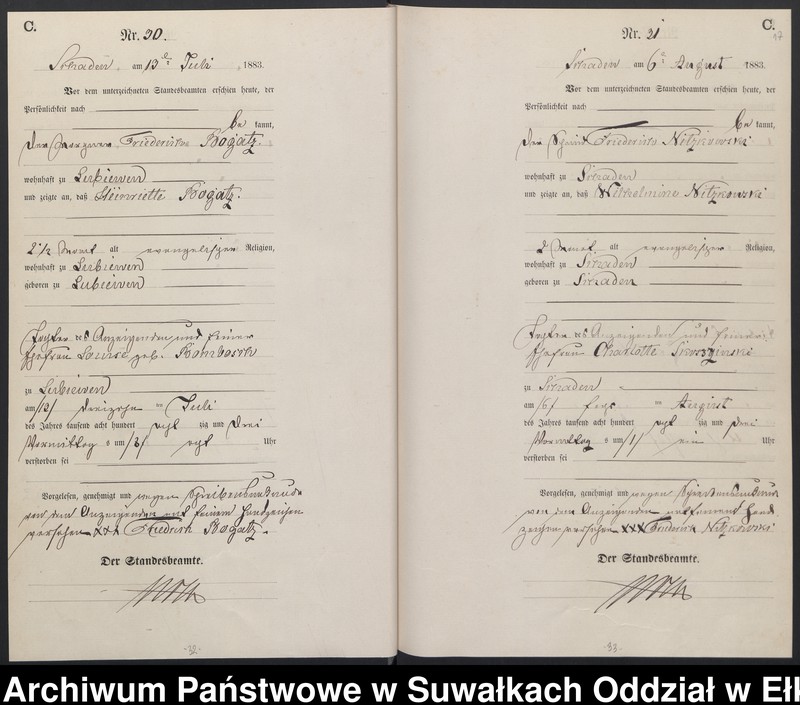 C.
Nr. 30.
Sczaden, am 13ten Juli 1883.
Vor dem unterzeichneten Standesbeamten erschien heute, der
Persönlichkeit nach
be kannt,
der Friederich Bogatz.
wohnhaft zu
und zeigte an, daß Heinriette Bogatz.
2 1/2 Monat alt evangelischer Religion,
wohnhaft zu
geboren zu
Tochter des Anzeigenden und seiner
Ehefrau Louise geb.
zu
am /13/ dreizehn ten Juli
des Jahres tausend acht hundert acht zig und drei
Vormittag s um /8/ acht Uhr
verstorben sei
Vorgelesen, genehmigt und wegen Schreibensunkunde
von dem Anzeigenden mit seinem Handzeichen
versehen XXX Friedrich Bogatz.
Der Standesbeamte.
-32-
C.
17
Nr. 31
Sczaden am 6ten August 1883.
Vor dem unterzeichneten Standesbeamten erschien heute, der
Persönlichkeit nach
be kannt,
der Friederich Nitzkowski
wohnhaft zu Sczaden
und zeigte an, daß Wilhelmine Nitzkowski
2 Monat alt evangelischer Religion,
wohnhaft zu Sczaden
geboren zu Sczaden
Tochter des Anzeigenden und seiner
Ehefrau Charlotte
zu Sczaden
am /6/ sechs ten August
des Jahres tausend acht hundert acht zig und drei
Vormittag s um /1/ ein Uhr
verstorben sei
Vorgelesen, genehmigt und wegen Schreibensunkunde
von dem Anzeigenden mit seinem Hand
zeichen versehen XXX Friederich Nitzkowski
Der Standesbeamte.
-33-
Archiwum Państwowe w Suwałkach Oddział w Ełk